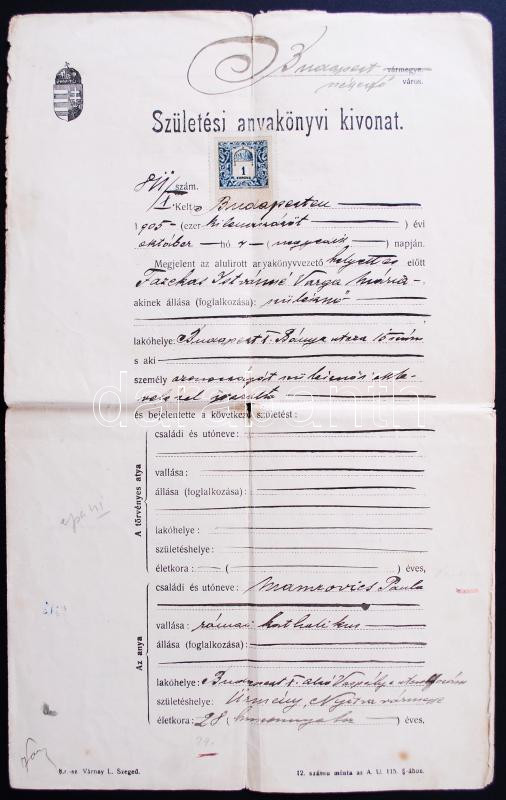 Budapest vármegye
város.
Születési anyakönyvi kivonat.
1
KORONA
811/I szám.
Kelt Budapesten
1905 (ezer kilencszázöt) évi
október hó 4 (negyedik) napján.
Megjelent az alulirott anyakönyvvezető helyettes előtt
Fazekas Istvánné Varga Mária
akinek állása (foglalkozása): szülésznő
lakóhelye: Budapest I. Bánya utca 15 szám
s aki
személy azonosságát szülésznői okle-
velével igazolta
és bejelentette a következő születést:
A törvényes atya
családi és utóneve:
vallása:
állása (foglalkozása):
lakóhelye:
születéshelye:
életkora: ( ) éves,
Az anya
családi és utóneve: Mamrovics Paula
vallása: római katholikus
állása (foglalkozása):
lakóhelye: Budapest I. alsó
születéshelye: Ürmény, Nyitra vármegye
életkora: 28 (huszonnyolc) éves,
Várnay L. Szeged.
12. számu minta az A. U. 115. §-ához.
darabanth